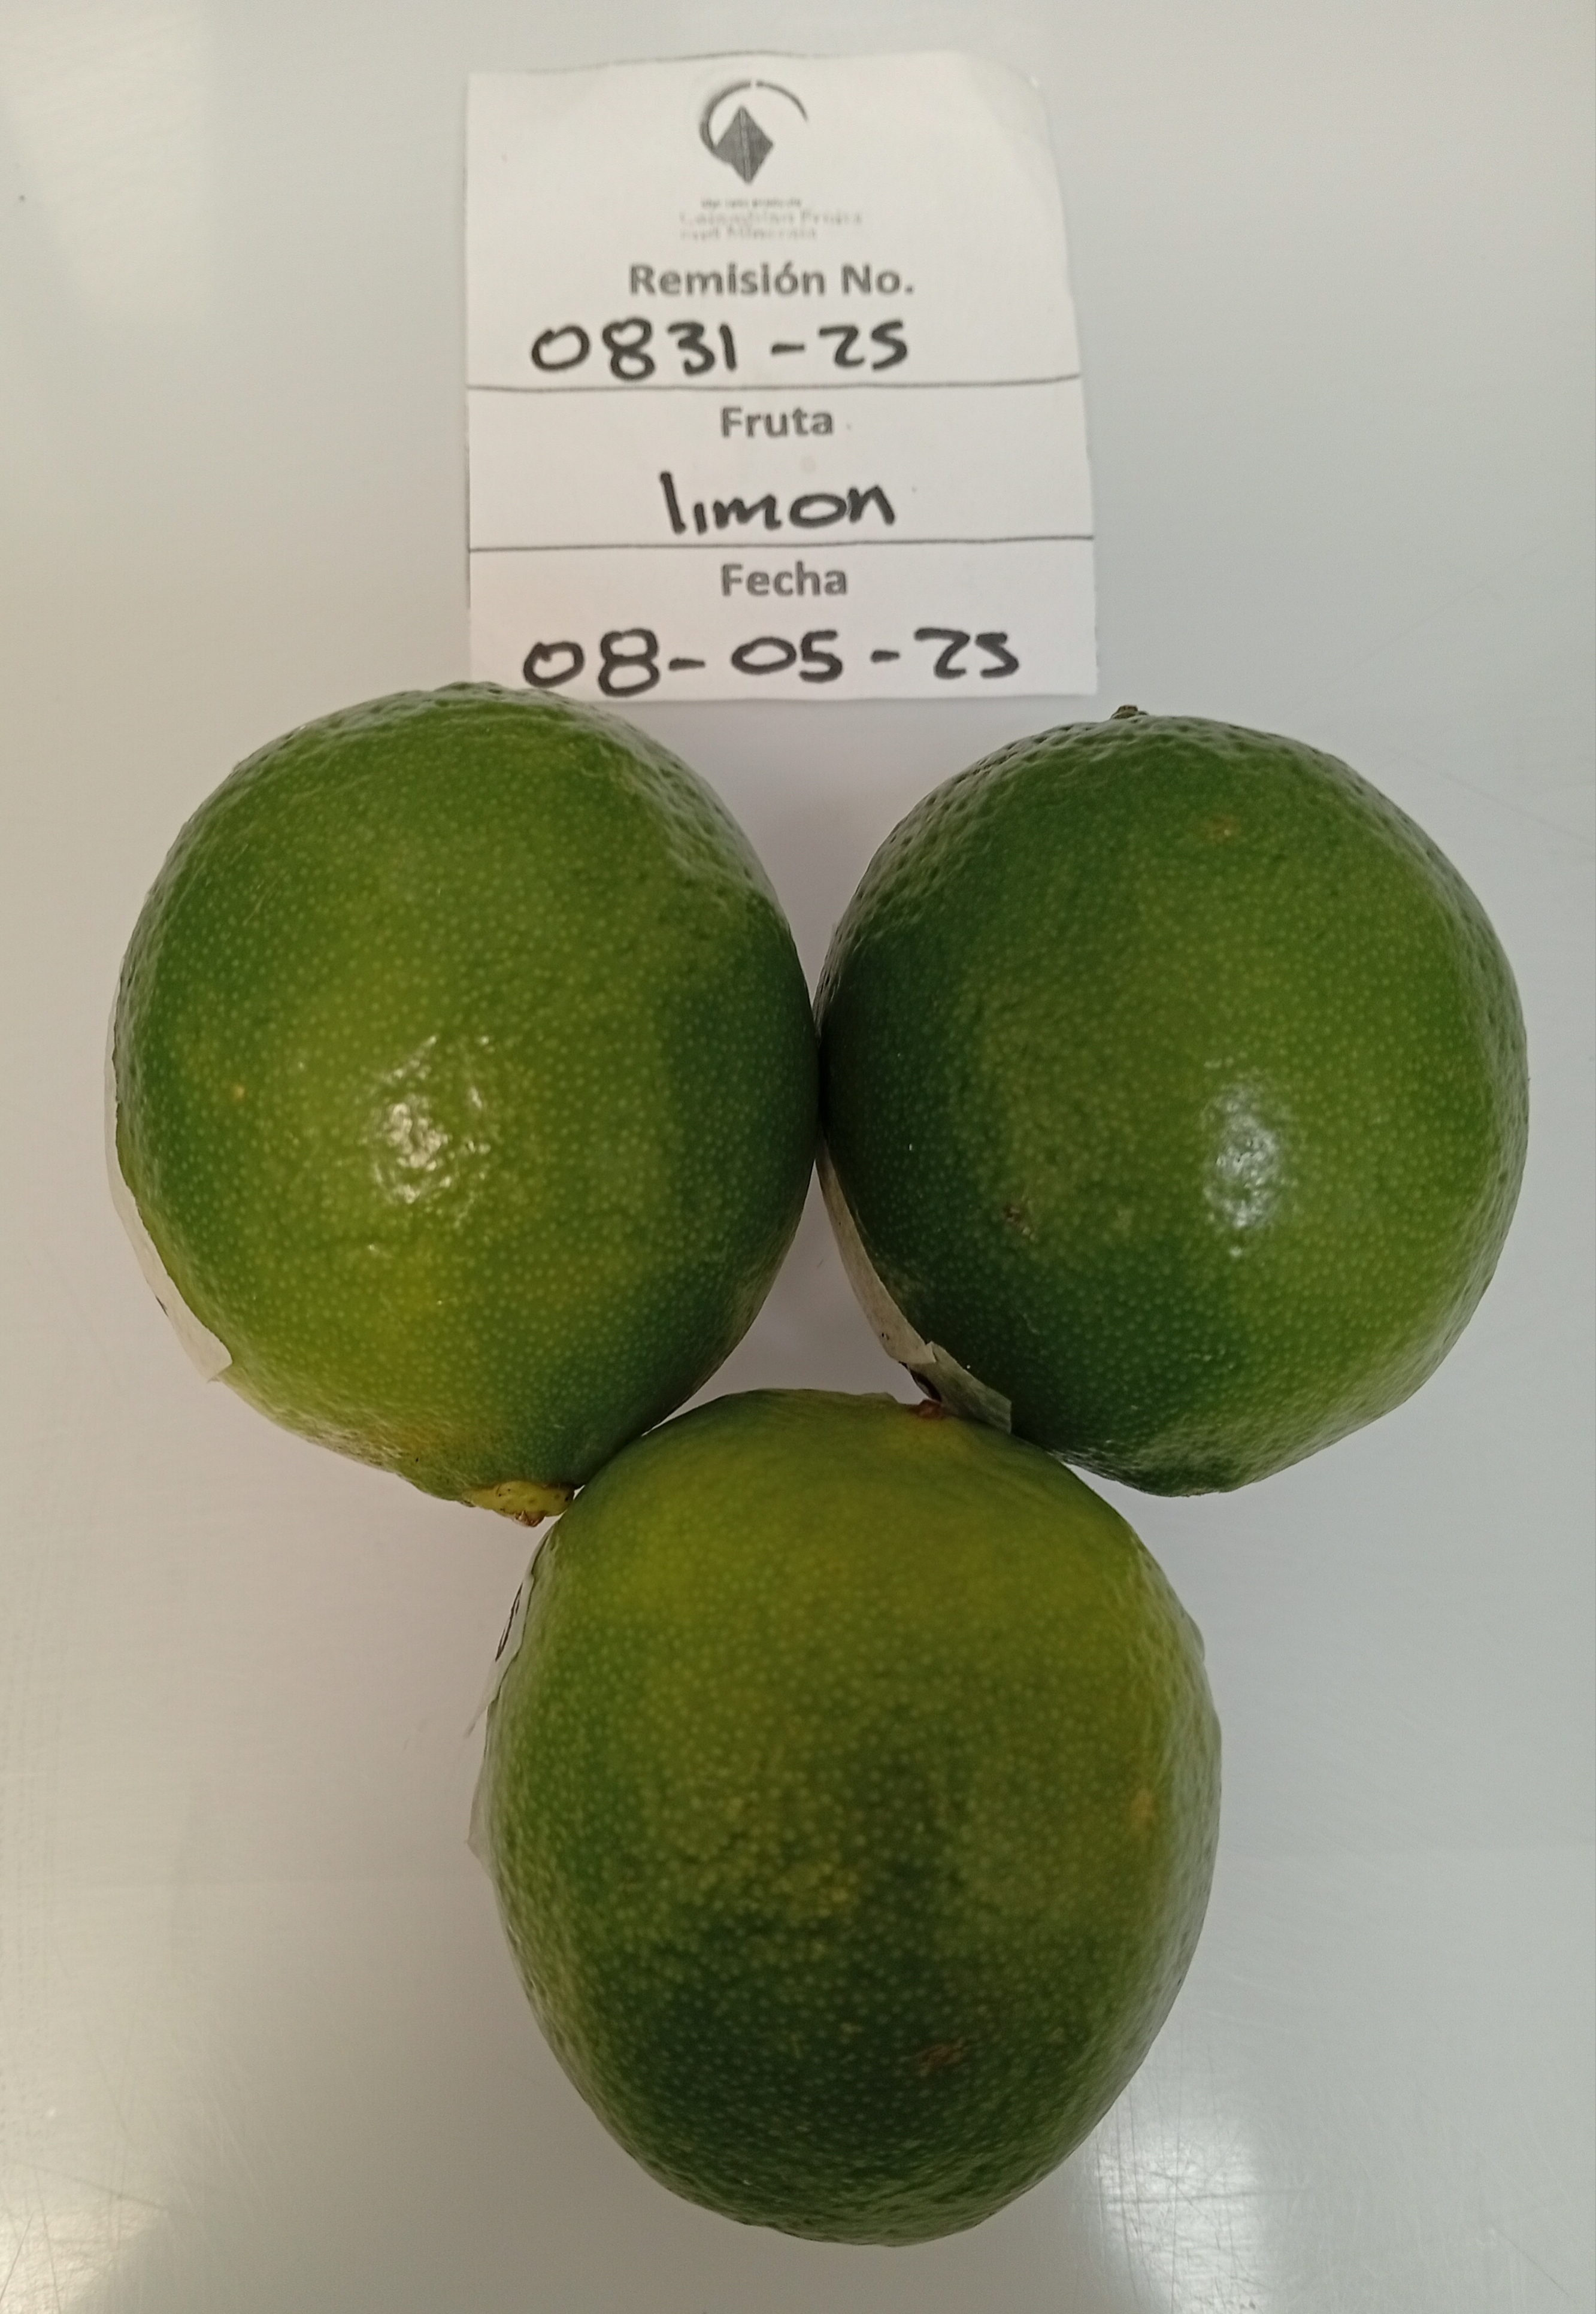 Remisión No.
0831-25
Fruta
limon
Fecha
08-05-25